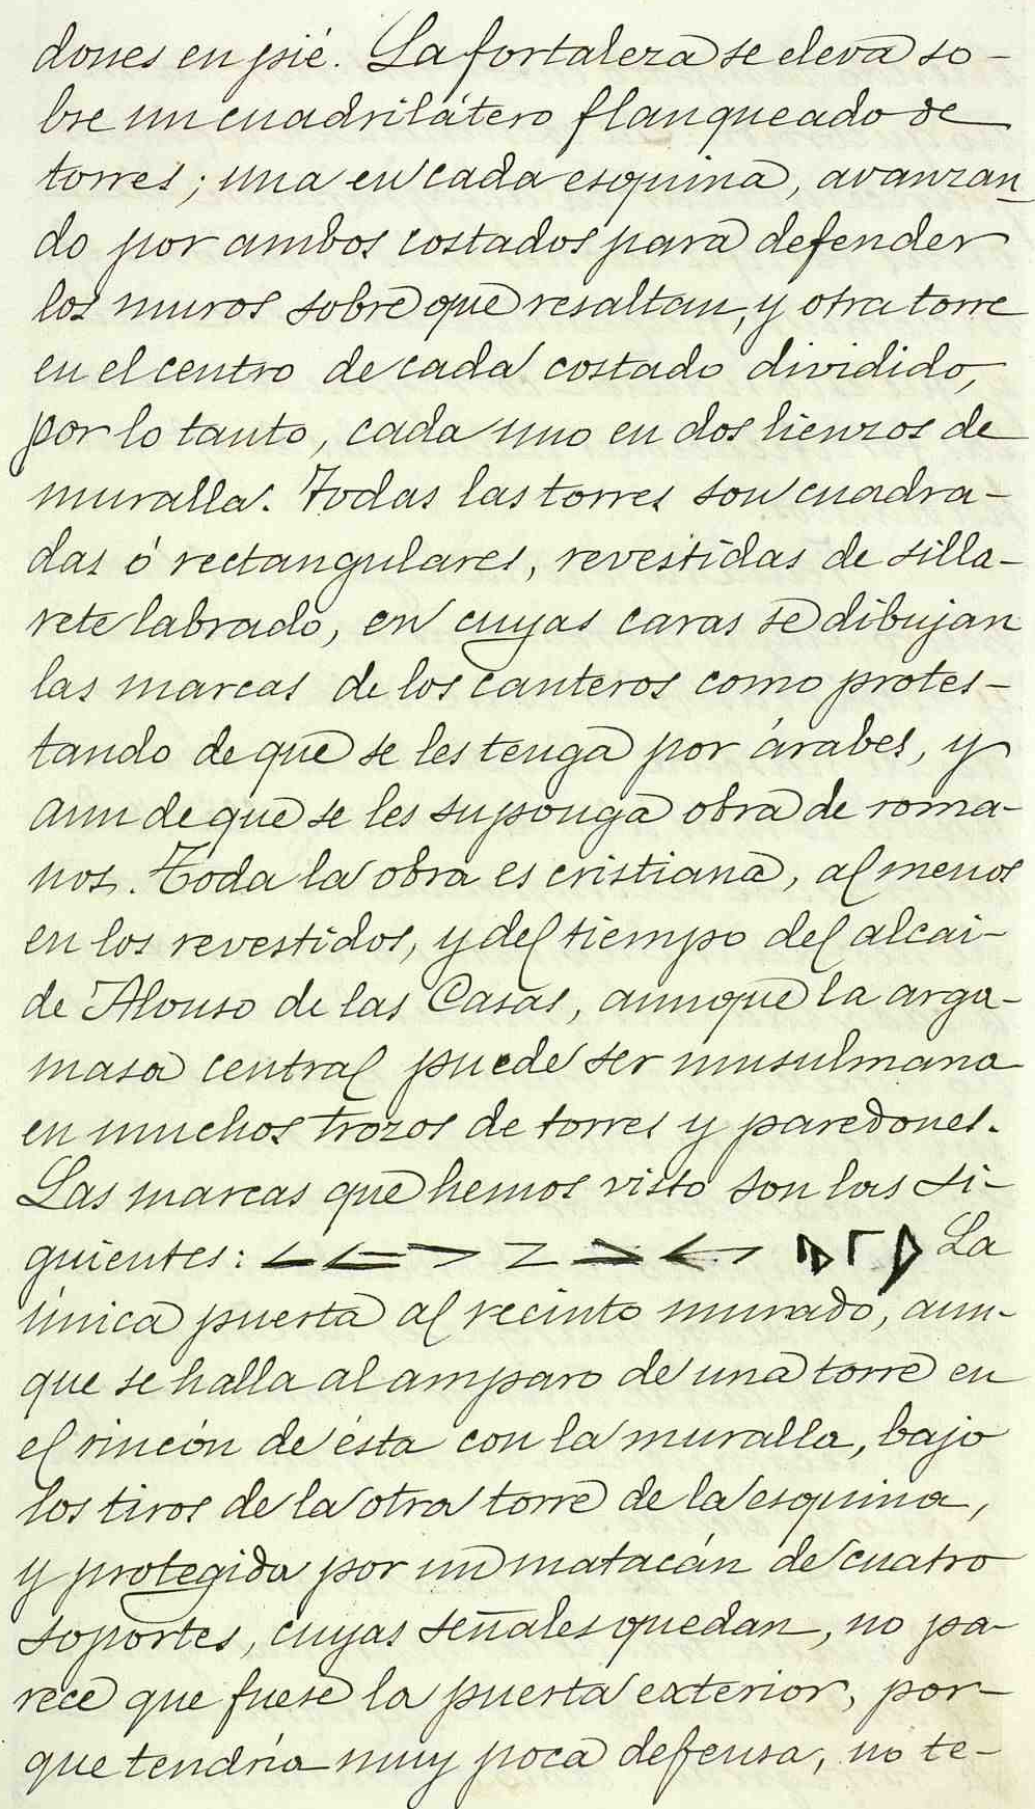 dones en pié. La fortaleza se eleva so-
bre un cuadrilátero flanqueado de
torres; una en cada esquina, avanzan
do por ambos costados para defender
los muros sobre que resaltan, y otra torre
en el centro de cada costado dividido,
por lo tanto, cada uno en dos lienzos de
muralla. Todas las torres son cuadra-
das ó rectangulares, revestidas de silla-
rete labrado, en cuyas caras se dibujan
las marcas de los canteros como protes-
tando de que se les tenga por árabes, y
aun de que se les suponga obra de roma-
nos. Toda la obra es cristiana, al menos
en los revestidos, y del tiempo del alcai-
de Alonso de las Casas, aunque la arga-
masa central puede ser musulmana
en muchos trozos de torres y paredones.
Las marcas que hemos visto son las si-
guientes: La
única puerta al recinto murado, aun-
que se halla al amparo de una torre en
el rincón de ésta con la muralla, bajo
los tiros de la otra torre de la esquina,
y protegida por un matacán de cuatro
soportes, cuyas señales quedan, no pa-
rece que fuese la puerta exterior, por-
que tendría muy poca defensa, no te-